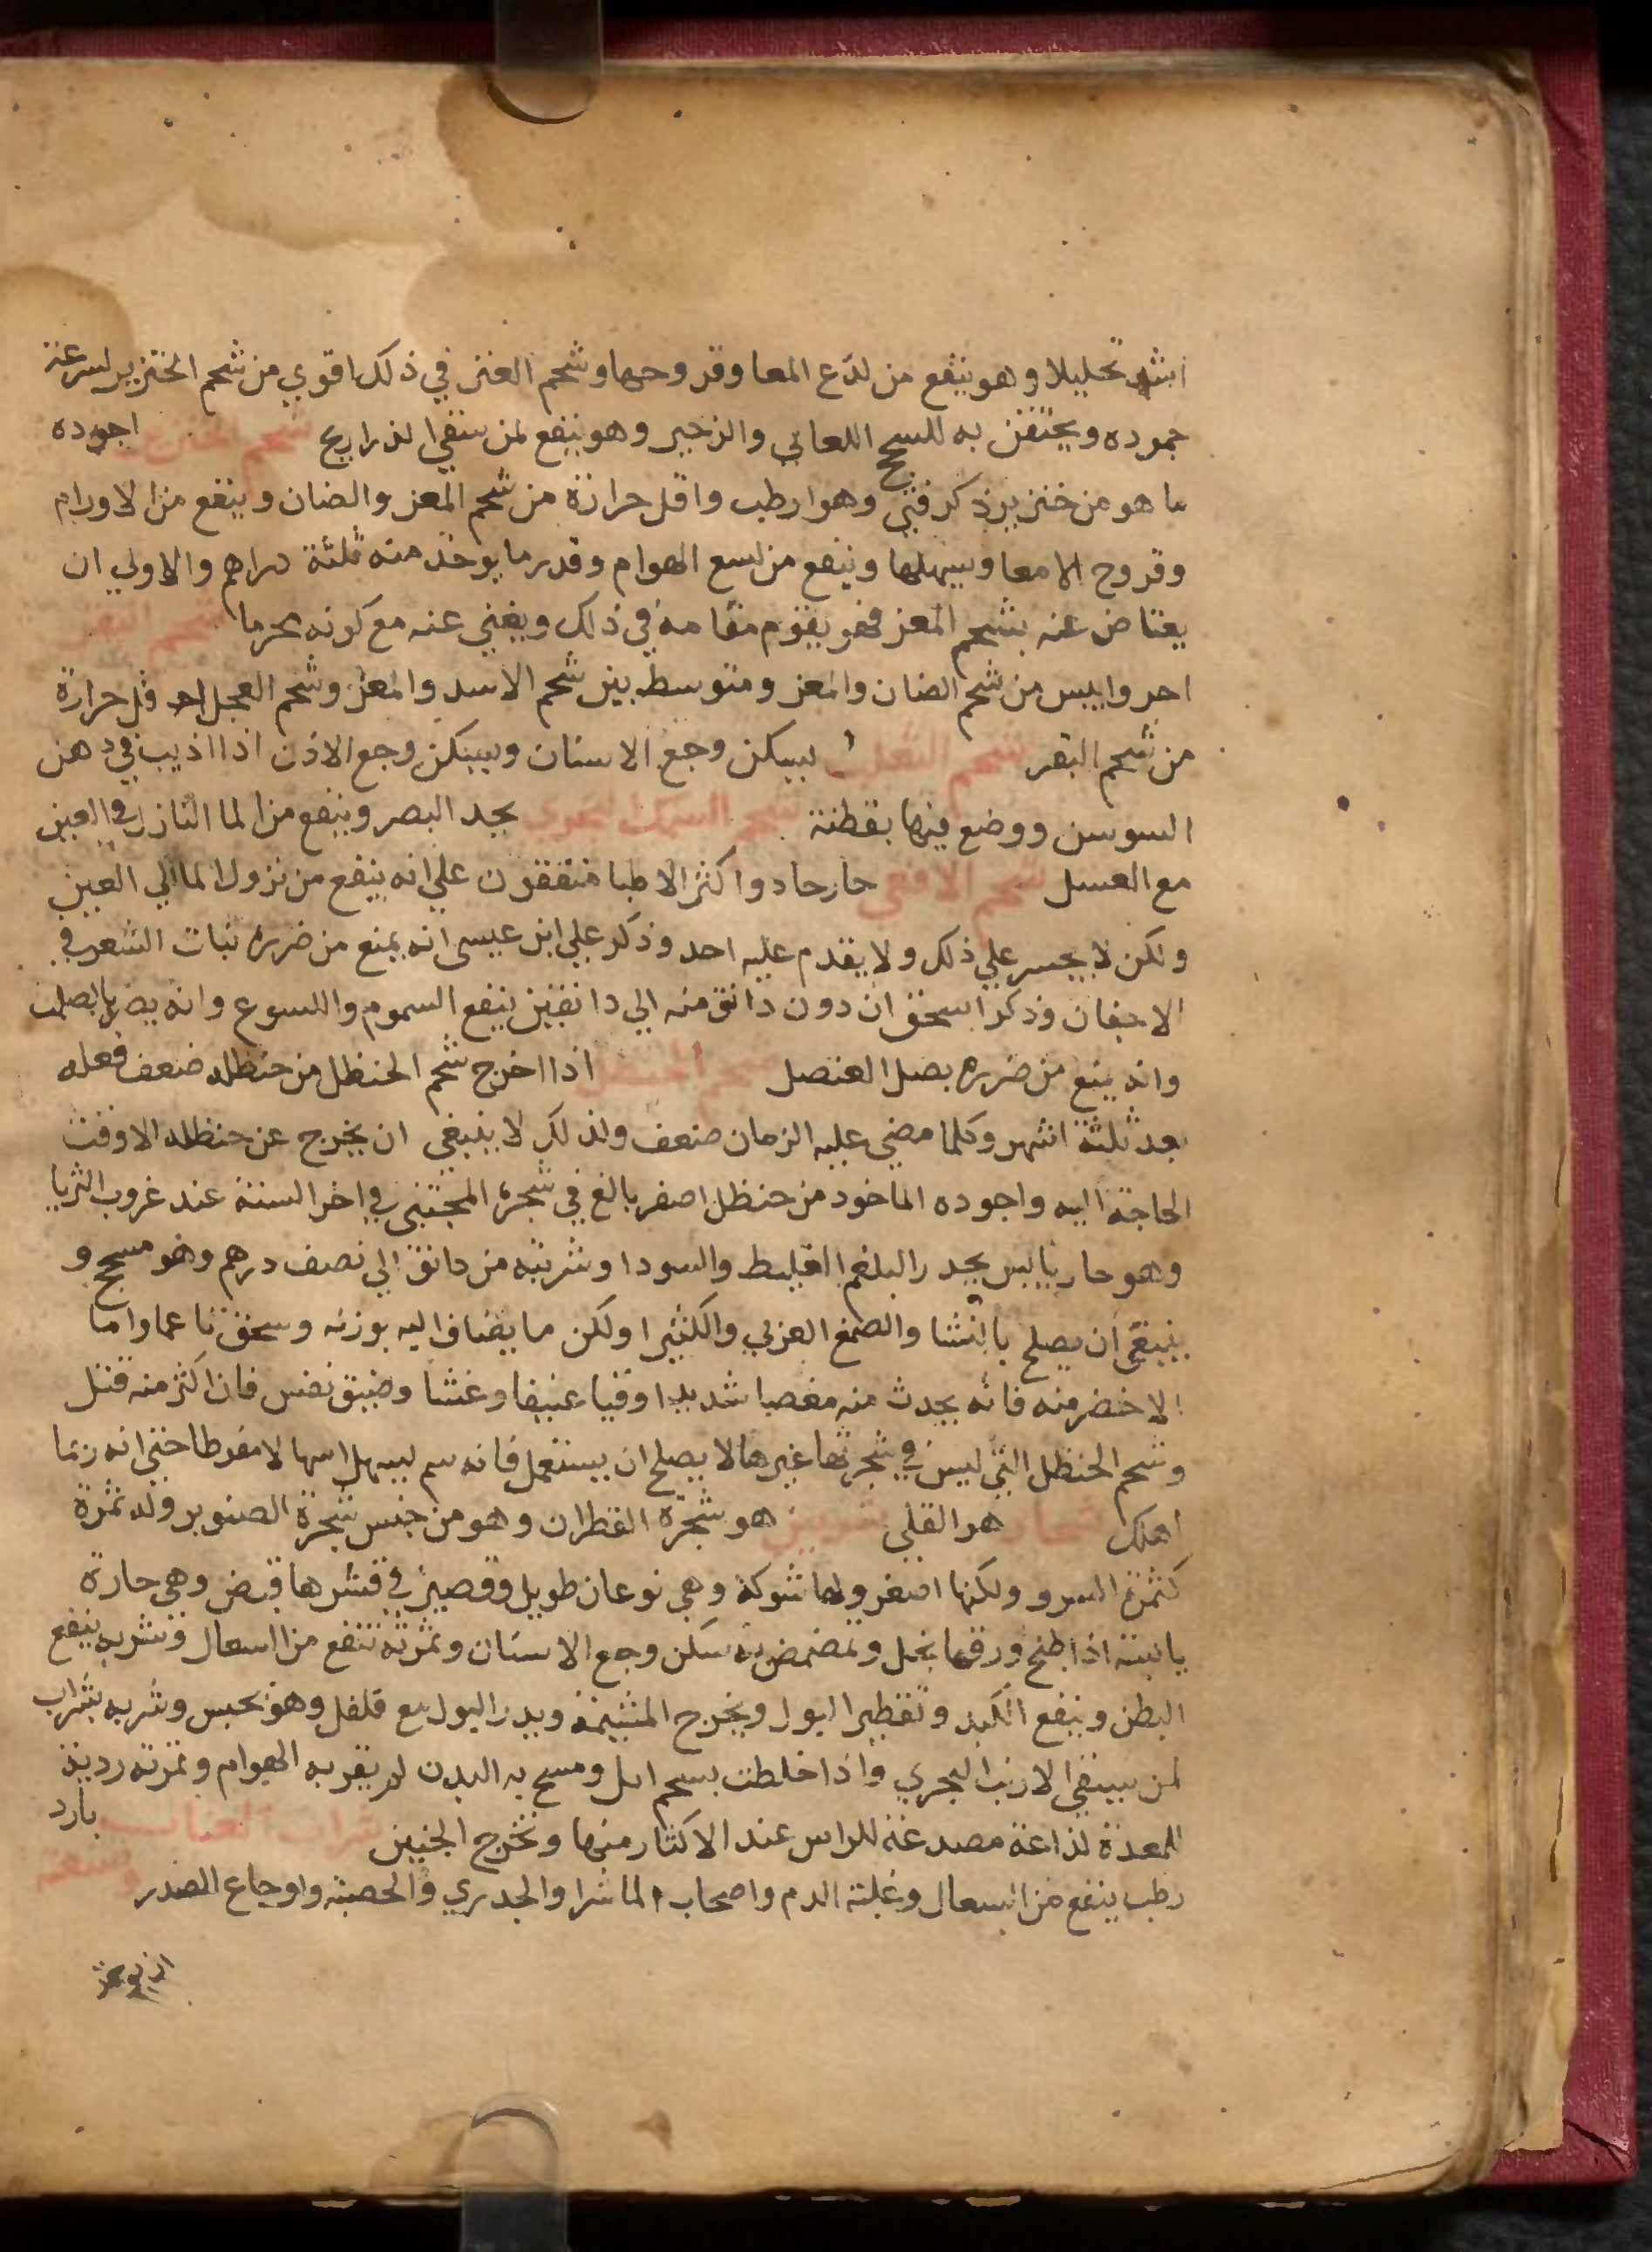 اشد تحليلا وهو ينفع من لدع المعا وقروحها وشحم العنز في ذلك اقوي من شحم الخنزير لسرعة
جموده ويحتقن به للسحج اللعابي والزحير وهو ينفع لمن سقي الذراريح شحم اجوده
ما هو من خنزير ذكر فتي وهو ارطب واقل حرارة من شحم المعز والضان وينفع من الاورام
وقروح الامعا ويسهلها وينفع من لسع الهوام وقدر ما يوخذ منه ثلثة دراهم والاولي ان
يعتاض عنه بشحم المعز فهو يقوم مقامه في ذلك ويغني عنه مع كونه محرما شحم البقر
احر وايبس من شحم الضان والمعز ومتوسط بين شحم الاسد والمعز وشحم العجل اقل حرارة
من شحم البقر شحم الثعلب يسكن وجع الاسنان ويسكن وجع الاذن اذا اذيب في دهن
السوسن ووضع فيها بقطنة شحم السمك يحد البصر وينفع من الما النازل في العين
مع العسل شحم الافعي حار حاد واكثر الاطبا متفقون علي انه ينفع من نزول الما الي العين
ولكن لا يجسر علي ذلك ولا يقدم عليه احد وذكر علي ابن عيسى انه يمنع من ضرره نبات الشعر في
الاجفان وذكر اسحق ان دون دانق منه الي دانقين ينفع السموم واللسوع وانه يضر بالصلب
وانه يمنع من ضرره بصل العنصل شحم الحنظل اذا اخرج شحم الحنظل من حنظله ضعف فعله
بعد ثلثة اشهر وكلما مضي عليه الزمان ضعف ولذلك لا ينبغي ان يخرج عن حنظله الا وقت
الحاجة اليه واجوده الماخود من حنظل اصفر بالغ في شجره المجتنى في اخر السنة عند غروب الثريا
وهو حار يابس يحدر البلغم الغليظ والسودا وشربته من دانق الي نصف درهم وهو مسحج و
ينبغي ان يصلح بالنشا والصمغ العربي والكثيرا ولكن ما يضاف اليه بوزنه وسحق ناعما واما
الاخضر منه فانه يحدث منه مغصا شديدا وقيا عنيفا وغشا وضيق نفس فان اكثر منه قتل
وشحم الحنظل التي ليس في شجرتها غيرها لا يصلح ان يستعمل فانه سم يسهل اسهالا مفرطا حتى انه ربما
اهلك شحار هو القلي شربين هو شجرة القطران وهو من جنس شجرة الصنوبر وله ثمرة
كثمرة السرو ولكنها اصغر ولها شوكة وهي نوعان طويل وقصير في قشرها قبض وهي حارة
يابسة اذا طبخ ورقها بخل وتمضمض به سكن وجع الاسنان وثمرته تنفع من السعال وشربه ينفع
البطن وينفع الكبد وتقطير البول ويخرج المشيمة ويدر البول مع فلفل وهو يحبس وشربه بشراب
لمن سقي الارنب البحري واذا خلطت بشحم ايل ومسح به البدن لم يقربه الهوام وثمرته رديئة
للمعدة لذاعة مصدعة للراس عند الاكثار منها وتخرج الجنين شراب العناب بارد
رطب ينفع من السعال وغلبة الدم واصحاب الماشرا والجدري والحصبة واوجاع الصدر وصنعته